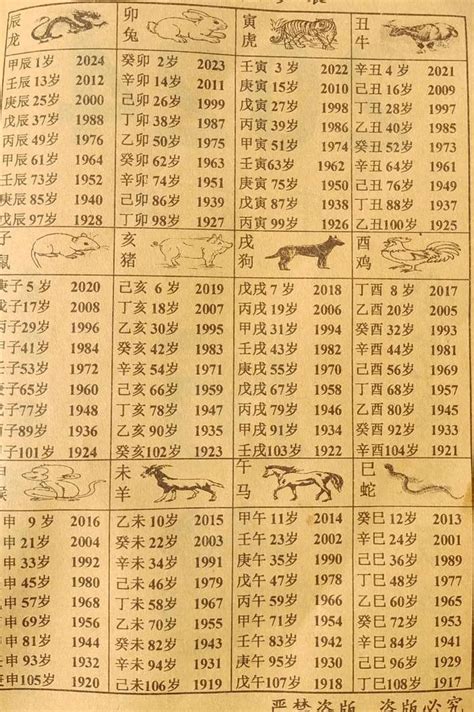 辰 卯 寅 丑
龙 兔 虎 牛
甲辰 1岁 2024 癸卯 2岁 2023 壬寅 3岁 2022 辛丑 4岁 2021
壬辰 13岁 2012 辛卯 14岁 2011 庚寅 15岁 2010 己丑 16岁 2009
庚辰 25岁 2000 己卯 26岁 1999 戊寅 27岁 1998 丁丑 28岁 1997
戊辰 37岁 1988 丁卯 38岁 1987 丙寅 39岁 1986 乙丑 40岁 1985
丙辰 49岁 1976 乙卯 50岁 1975 甲寅 51岁 1974 癸丑 52岁 1973
甲辰 61岁 1964 癸卯 62岁 1963 壬寅 63岁 1962 辛丑 64岁 1961
壬辰 73岁 1952 辛卯 74岁 1951 庚寅 75岁 1950 己丑 76岁 1949
庚辰 85岁 1940 己卯 86岁 1939 戊寅 87岁 1938 丁丑 88岁 1937
戊辰 97岁 1928 丁卯 98岁 1927 丙寅 99岁 1926 乙丑 100岁 1925
子 亥 戌 酉
鼠 猪 狗 鸡
庚子 5岁 2020 己亥 6岁 2019 戊戌 7岁 2018 丁酉 8岁 2017
戊子 17岁 2008 丁亥 18岁 2007 丙戌 19岁 2006 乙酉 20岁 2005
子 29岁 1996 乙亥 30岁 1995 甲戌 31岁 1994 癸酉 32岁 1993
子 41岁 1984 癸亥 42岁 1983 壬戌 43岁 1982 辛酉 44岁 1981
子 53岁 1972 辛亥 54岁 1971 庚戌 55岁 1970 己酉 56岁 1969
子 65岁 1960 己亥 66岁 1959 戊戌 67岁 1958 丁酉 68岁 1957
子 77岁 1948 丁亥 78岁 1947 丙戌 79岁 1946 乙酉 80岁 1945
子 89岁 1936 乙亥 90岁 1935 甲戌 91岁 1934 癸酉 92岁 1933
子 101岁 1924 癸亥 102岁 1923 壬戌 103岁 1922 辛酉 104岁 1921
未 午 巳
羊 马 蛇
申 9岁 2016 乙未 10岁 2015 甲午 11岁 2014 癸巳 12岁 2013
申 21岁 2004 癸未 22岁 2003 壬午 23岁 2002 辛巳 24岁 2001
申 33岁 1992 辛未 34岁 1991 庚午 35岁 1990 己巳 36岁 1989
申 45岁 1980 己未 46岁 1979 戊午 47岁 1978 丁巳 48岁 1977
申 57岁 1968 丁未 58岁 1967 丙午 59岁 1966 乙巳 60岁 1965
申 69岁 1956 乙未 70岁 1955 甲午 71岁 1954 癸巳 72岁 1953
申 81岁 1944 癸未 82岁 1943 壬午 83岁 1942 辛巳 84岁 1941
申 93岁 1932 辛未 94岁 1931 庚午 95岁 1930 己巳 96岁 1929
申 105岁 1920 己未 106岁 1919 戊午 107岁 1918 丁巳 108岁 1917
严禁盗版 盗版必究